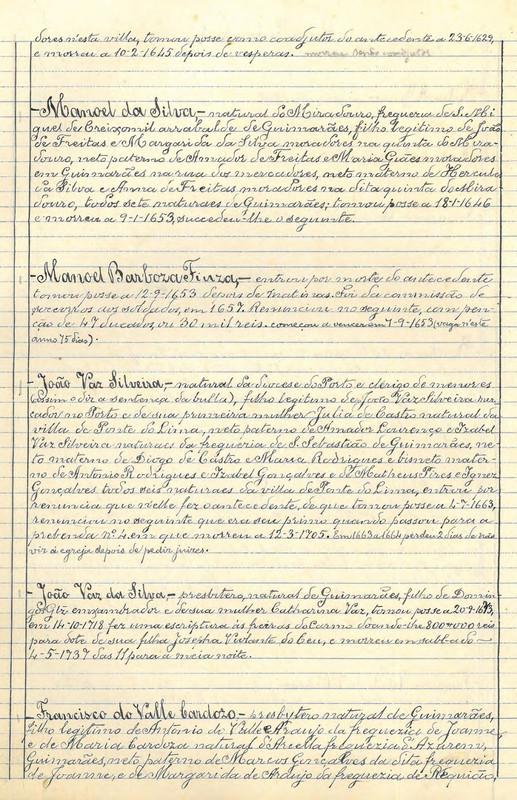 dores n'esta villa, tomou posse como coadjutor do antecedente a 23-6-1629,
e morreu a 10-2-1645 depois de vesperas. morreu sendo coadjutor
-Manoel da Silva- natural do Miradouro, freguezia de S. Mi-
guel de Creixomil arrabalde de Guimarães, filho legitimo de João
de Freitas e Margarida da Silva moradores na quinta do Mira-
douro, neto paterno de Amador de Freitas e Maria Giães moradores
em Guimarães na rua dos mercadores, neto materno de Hercules
da Silva e Anna de Freitas moradores na dita quinta do Mira-
douro, todos sete naturaes de Guimarães; tomou posse a 18-1-1646
e morreu a 9-1-1653, succedeu-lhe o seguinte.
-Manoel Barboza Fiuza,- entrou por morte do antecedente
tomou posse a 12-9-1653 depois de matinas. Foi da commissão de
soccorros aos soldados, em 1657. Renunciou no seguinte, com pen-
ção de 47 ducados, ou 30 mil reis. começou a vencer em 7-9-1653 (vaga n'este
anno 75 dias).
-João Vaz Silveira,- natural da diocese do Porto e clerigo de menores
(assim o diz a sentença da bulla), filho legitimo de João Vaz Silveira mer-
cador no Porto e de sua primeira mulher Julia de Castro natural da
villa de Ponte do Lima, neto paterno de Amador Lourenço e Izabel
Vaz Silveira naturaes da freguezia de S. Sebastião de Guimarães, ne-
to materno de Diogo de Castro e Maria Rodrigues e bisneto mater-
no de Antonio Rodrigues e Izabel Gonçalves e de Matheus Pires e Ignez
Gonçalves todos seis naturaes da villa de Ponte do Lima, entrou por
renuncia que n'elle fez o antecedente, de que tomou posse a 4-7-1663,
renunciou no seguinte que era seu primo quando passou para a
prebenda nº 4 em que morreu a 12-3-1705. Em 1663 a 1664 perdeu 2 dias de não
vir á egreja depois de pedir
-João Vaz da Silva,- presbitero, natural de Guimarães, filho de Domin-
gos Glz enxambrador e de sua mulher Catharina Vaz, tomou posse a
em 14-10-1718 fez uma escriptura ás freiras do Carmo doando-lhe 800#000 reis
para dote de sua filha Josepha Violante do Ceu, e morreu em sabbado
4-5-1737 das 11 para a meia noite.
-Francisco do Valle Cardozo- presbytero natural de Guimarães,
filho legitimo de Antonio do Valle e Araujo da freguezia de Joanne,
e de Maria Cardoza natural d'Arcella freguezia d'Azurem,
Guimarães, neto paterno de Marcos Gonçalves da dita freguezia
de Joanne, e de Margarida de Araujo da freguezia de Requião,